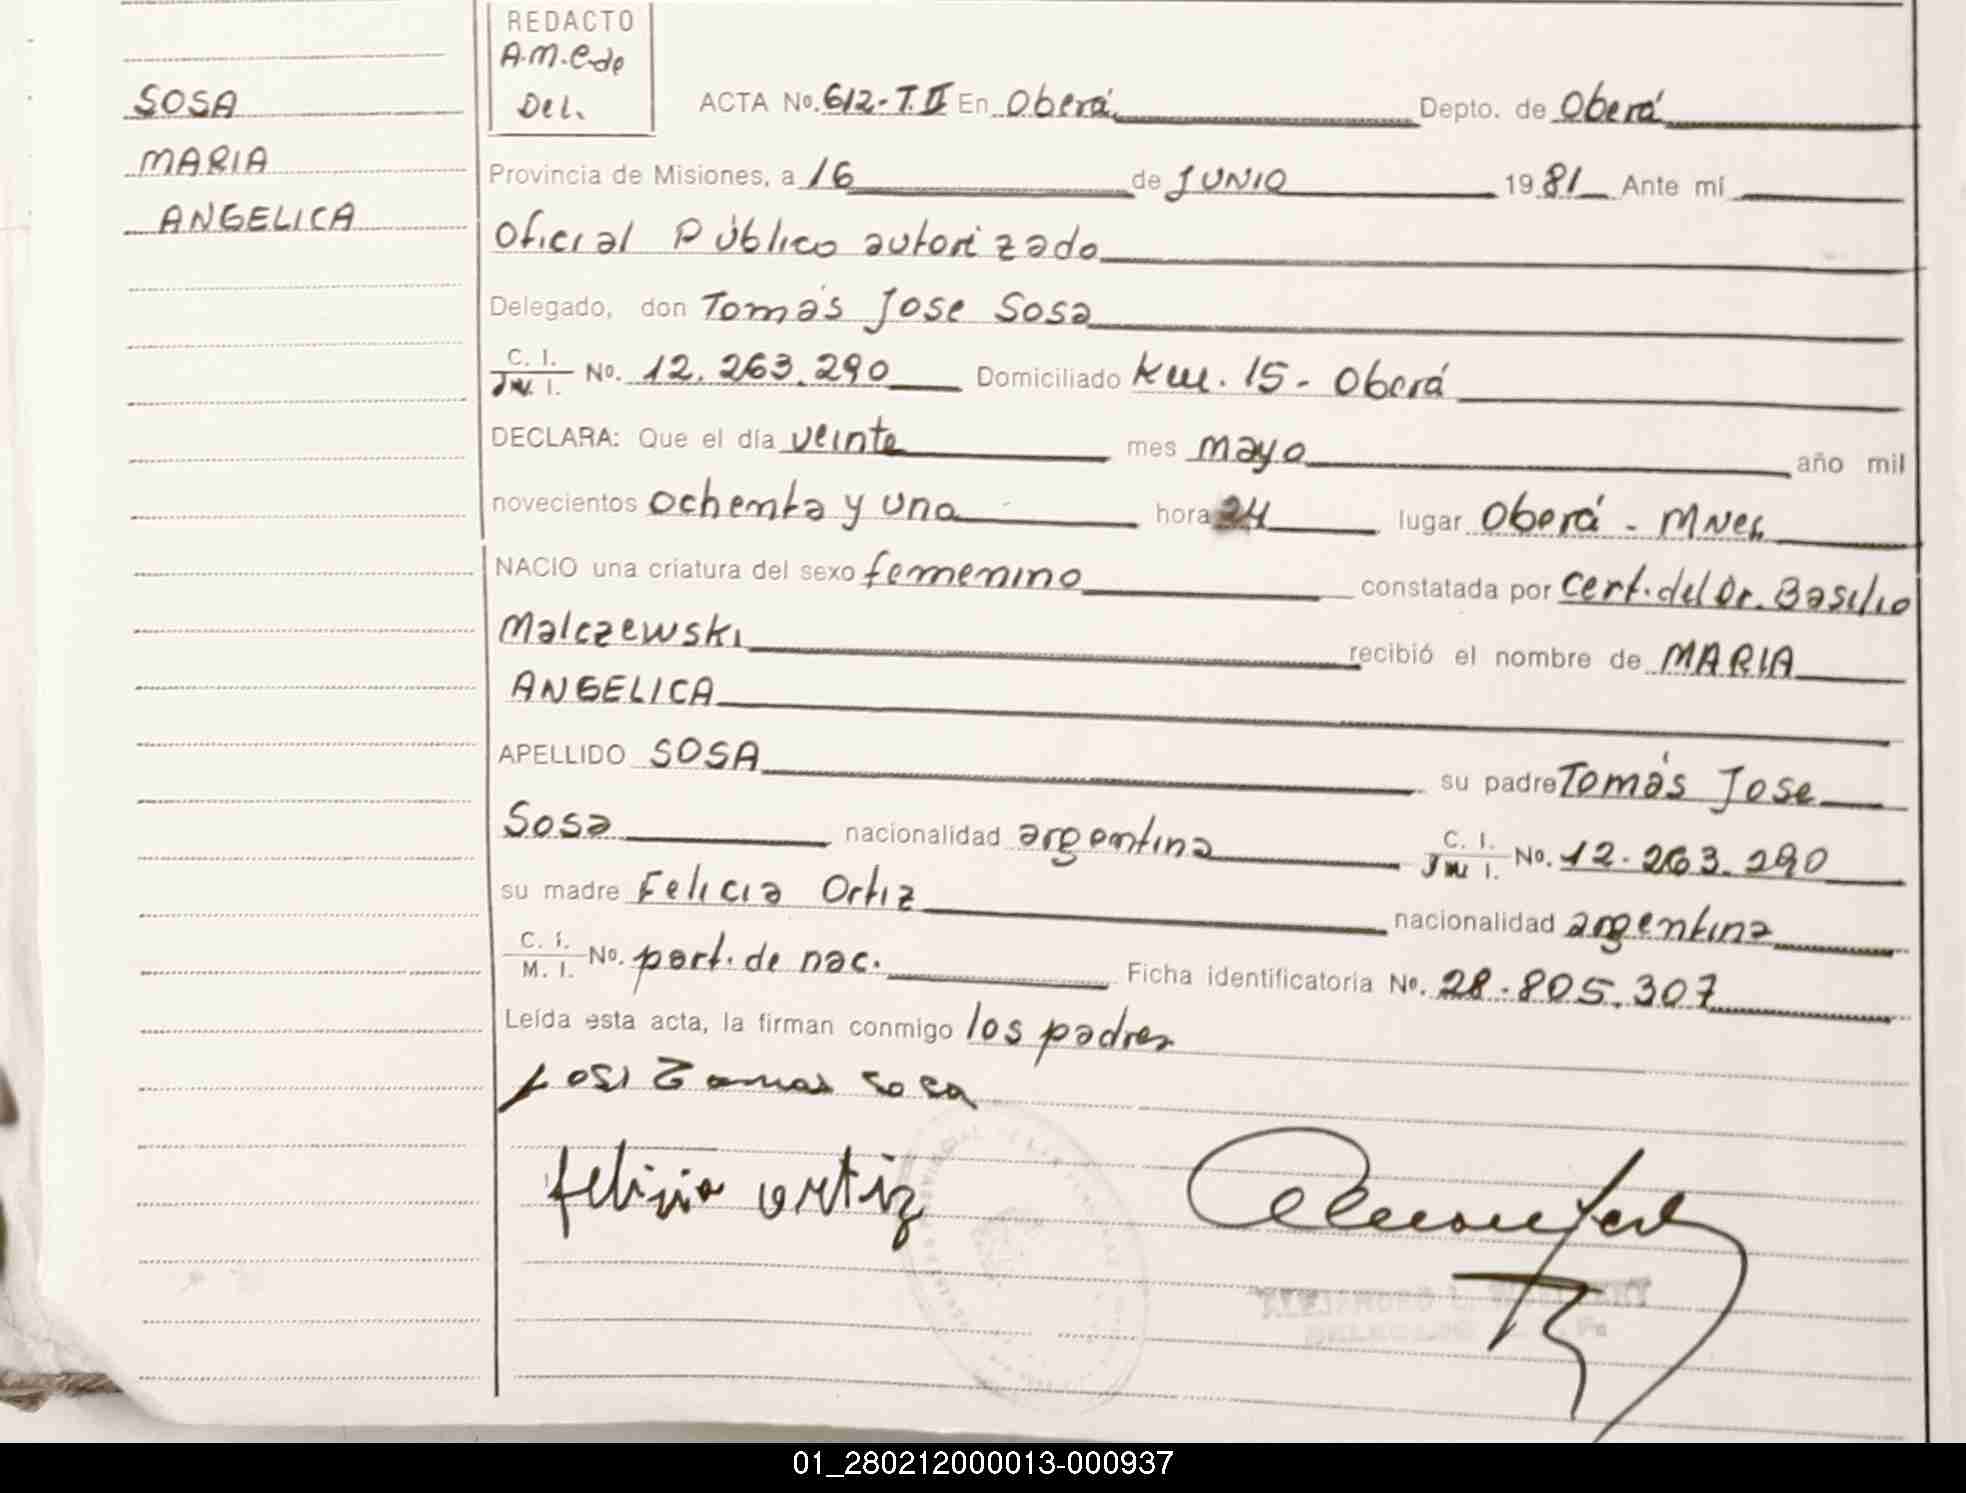 SOSA
MARIA
ANGELICA
REDACTO
A.M.C. de
Del.
ACTA No. 612-T.II En Oberá Depto. de Oberá
Provincia de Misiones, a 16 de JUNIO 1981 Ante mí
Oficial Público autorizado
Delegado, don Tomás Jose Sosa
C. I. / M. I. No. 12.263.290 Domiciliado km. 15 - Oberá
DECLARA: Que el día veinte mes mayo año mil
novecientos ochenta y uno hora 24 lugar Oberá - Mnes
NACIO una criatura del sexo femenino constatada por Cert. del Dr. Basilio
Malczewski recibió el nombre de MARIA
ANGELICA
APELLIDO SOSA su padre Tomás Jose
Sosa nacionalidad argentina C. I. / M. I. No. 12.263.290
su madre Felicia Ortiz nacionalidad argentina
C. I. / M. I. No. part. de nac. Ficha identificatoria No. 28.805.307
Leída esta acta, la firman conmigo los padres
Josi Tomas Sosa
felisia ortiz
ALEJANDRO
01_280212000013-000937